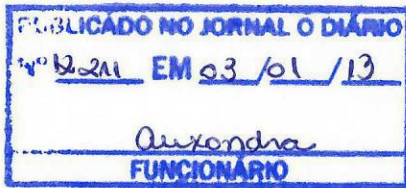 PUBLICADO NO JORNAL O DIÁRIO
Nº 12.211 EM 03 / 01 / 13
FUNCIONÁRIO